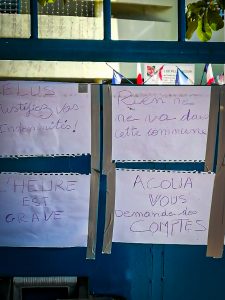 ELUS...
Justifiez vos
indemnités!
Rien ne
ne va dans
cette commune
L'HEURE
EST
GRAVE
ACQUA
VOUS
Demande des
COMPTES